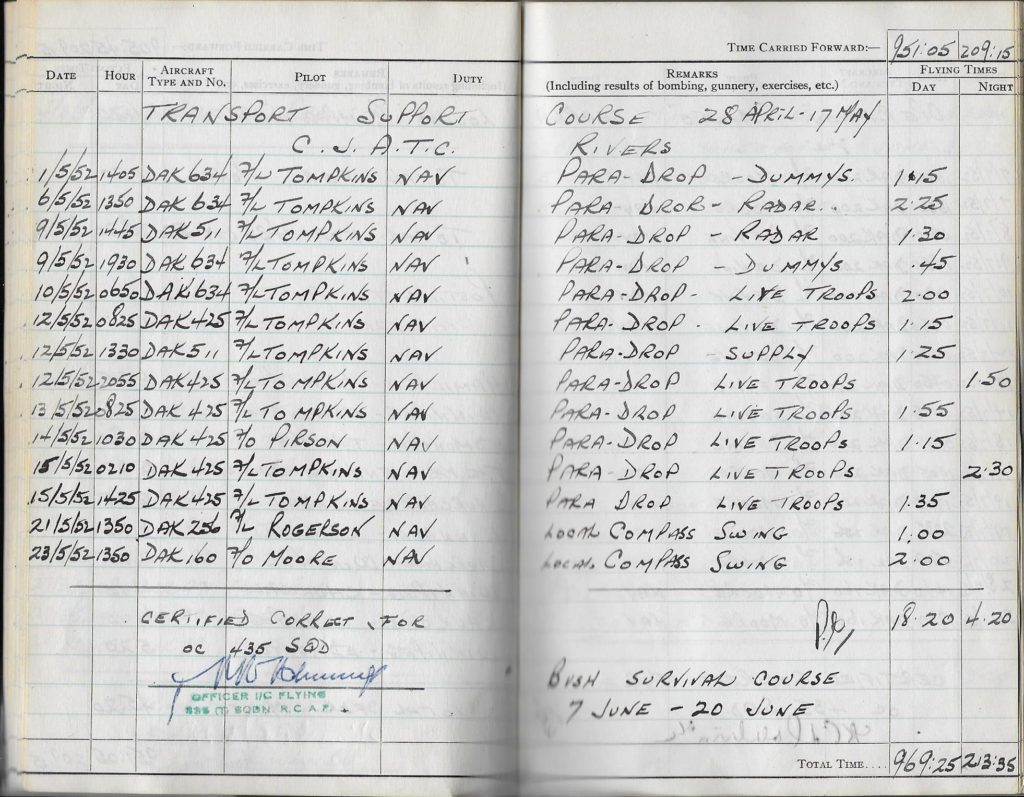 TIME CARRIED FORWARD:— 951:05 209:15
DATE HOUR AIRCRAFT TYPE AND NO. PILOT DUTY REMARKS (Including results of bombing, gunnery, exercises, etc.) FLYING TIMES DAY NIGHT
TRANSPORT SUPPORT COURSE 28 APRIL - 17 MAY
C.J.A.T.C. RIVERS
1/5/52 1405 DAK 634 F/L TOMPKINS NAV PARA-DROP - DUMMYS. 1.15
6/5/52 1350 DAK 634 F/L TOMPKINS NAV PARA DROP - RADAR. 2.25
9/5/52 1445 DAK 511 F/L TOMPKINS NAV PARA-DROP - RADAR 1.30
9/5/52 1930 DAK 634 F/L TOMPKINS NAV PARA-DROP - DUMMYS .45
10/5/52 0650 DAK 634 F/L TOMPKINS NAV PARA-DROP - LIVE TROOPS 2.00
12/5/52 0825 DAK 425 F/L TOMPKINS NAV PARA-DROP - LIVE TROOPS 1.15
12/5/52 1330 DAK 511 F/L TOMPKINS NAV PARA-DROP - SUPPLY 1.25
12/5/52 2055 DAK 425 F/L TOMPKINS NAV PARA-DROP LIVE TROOPS 1.50
13/5/52 0825 DAK 425 F/L TOMPKINS NAV PARA-DROP LIVE TROOPS 1.55
14/5/52 1030 DAK 425 F/O PIRSON NAV PARA-DROP LIVE TROOPS 1.15
15/5/52 0210 DAK 425 F/L TOMPKINS NAV PARA-DROP LIVE TROOPS 2:30
15/5/52 1425 DAK 425 F/L TOMPKINS NAV PARA DROP LIVE TROOPS 1.35
21/5/52 1350 DAK 256 F/L ROGERSON NAV LOCAL COMPASS SWING 1.00
23/5/52 1350 DAK 160 F/O MOORE NAV LOCAL COMPASS SWING 2.00
CERTIFIED CORRECT, FOR 18.20 4.20
OC 435 SQD
OFFICER I/C FLYING
(T) SQDN. R.C.A.F.
BUSH SURVIVAL COURSE
7 JUNE - 20 JUNE
TOTAL TIME.... 969:25 213:35